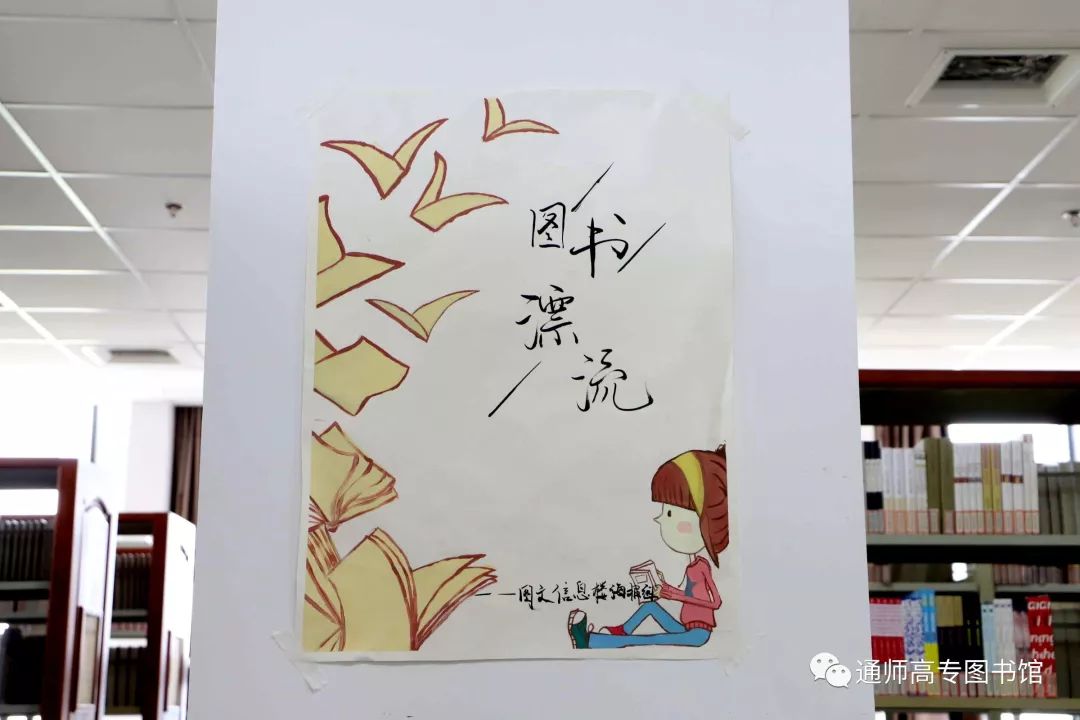 图书
漂
流
——图文信息楼海报组
通师高专图书馆